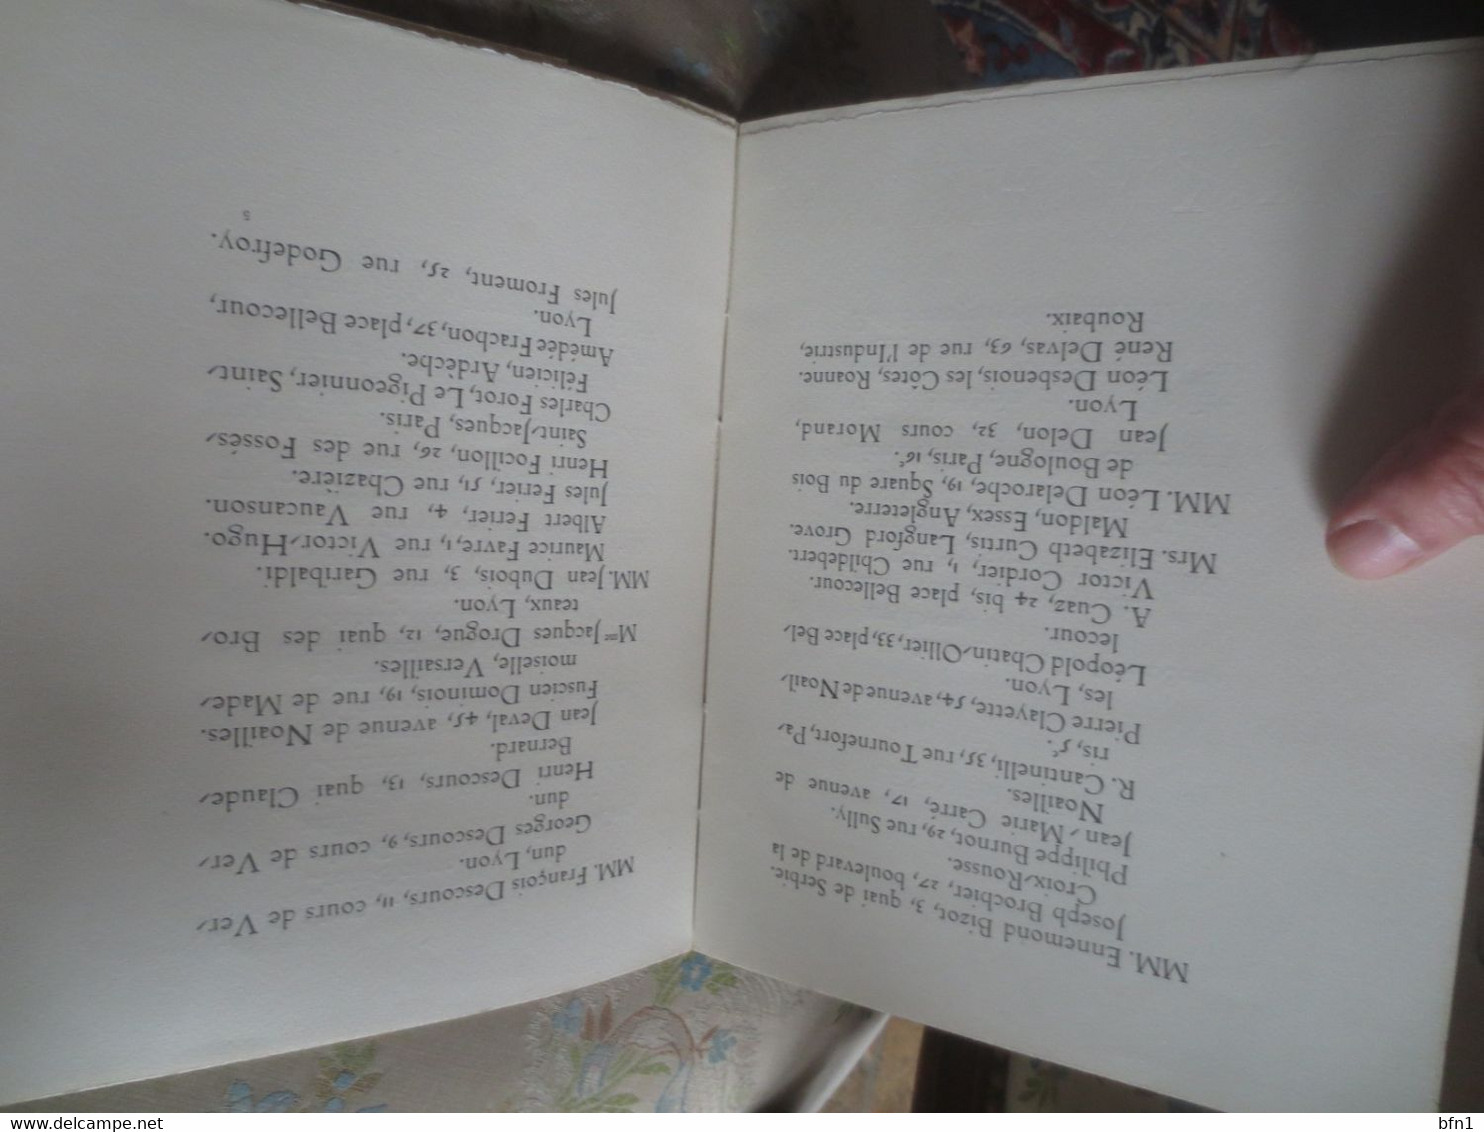 MM. Ennemond Bizot, 3, quai de Serbie.
Joseph Brochier, 27, boulevard de la
Croix-Rousse.
Philippe Burnot, 29, rue Sully.
Jean-Marie Carré, 17, avenue de
Noailles.
R. Cantinelli, 35, rue Tournefort, Pa-
ris, 5e.
Pierre Clayette, 54, avenue de Noail-
les, Lyon.
Léopold Chatin-Ollier, 33, place Bel-
lecour.
A. Cuaz, 24 bis, place Bellecour.
Victor Cordier, 1, rue Childebert.
Mrs. Elizabeth Curtis, Langford Grove.
Maldon, Essex, Angleterre.
MM. Léon Delaroche, 19, Square du Bois
de Boulogne, Paris, 16e.
Jean Delon, 32, cours Morand,
Lyon.
Léon Desbenois, les Côtes, Roanne.
René Delvas, 63, rue de l'Industrie,
Roubaix.
MM. François Descours, 11, cours de Ver-
dun, Lyon.
Georges Descours, 9, cours de Ver-
dun.
Henri Descours, 13, quai Claude-
Bernard.
Jean Deval, 45, avenue de Noailles.
Fuscien Dominois, 19, rue de Made-
moiselle, Versailles.
Mme Jacques Drogue, 12, quai des Bro-
teaux, Lyon.
MM. Jean Dubois, 3, rue Garibaldi.
Maurice Favre, 1, rue Victor-Hugo.
Albert Ferier, 4, rue Vaucanson.
Jules Ferier, 51, rue Chazière.
Henri Focillon, 26, rue des Fossés-
Saint-Jacques, Paris.
Charles Forot, Le Pigeonnier, Saint-
Félicien, Ardèche.
Amédée Frachon, 37, place Bellecour,
Lyon.
Jules Froment, 25, rue Godefroy.
5
My auctions on Delcampe
bfn1